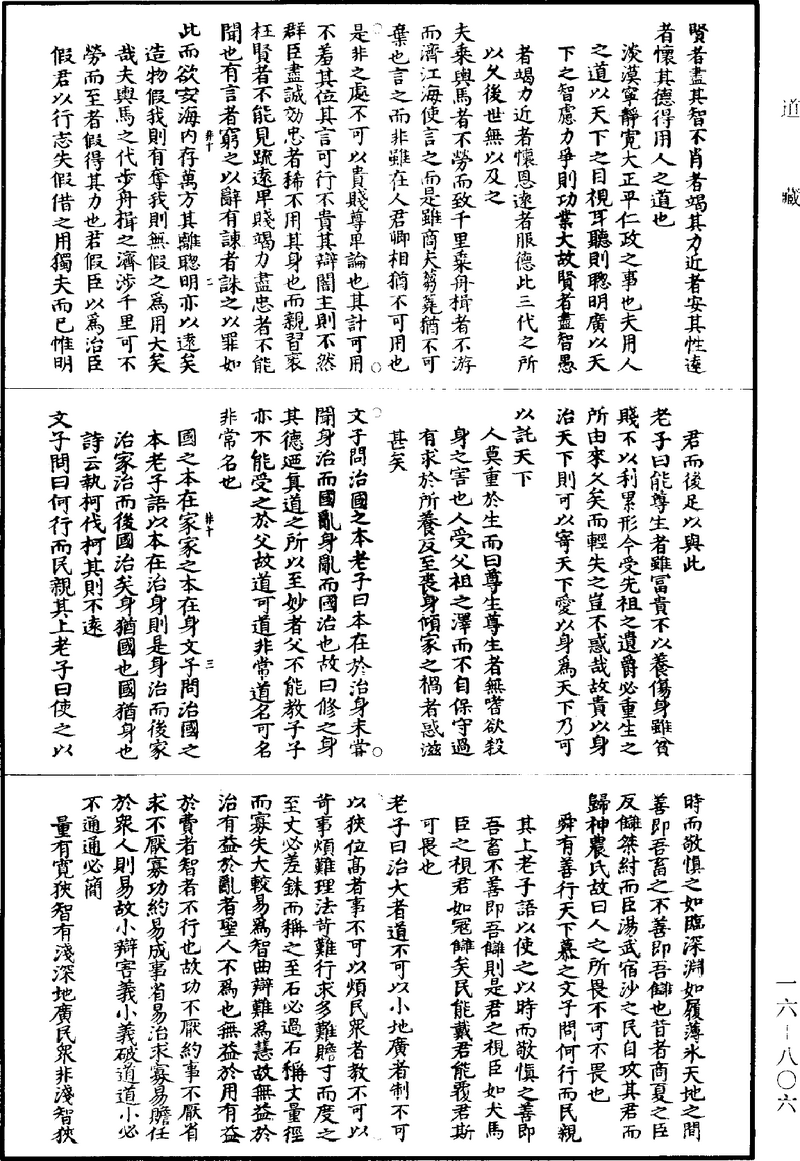 道藏
賢者盡其智不肖者竭其力近者安其性遠
者懷其德得用人之道也
淡漠寧靜寬大正平仁政之事也夫用人
之道以天下之目視耳聽則聰明廣以天
下之智慮力爭則功業大故賢者盡智愚
者竭力近者懷恩遠者服德此三代之所
以久後世無以及之
夫乘輿馬者不勞而致千里乘舟楫者不游
而濟江海使言之而是雖商夫蒭蕘猶不可
棄也言之而非雖在人君卿相猶不可用也
是非之處不可以貴賤尊卑論也其計可用
不羞其位其言可行不貴其辯闇主則不然
群臣盡誠効忠者稀不用其身也而親習衺
枉賢者不能見踈遠卑賤竭力盡忠者不能
聞也有言者窮之以辭有諫者誅之以罪如
此而欲安海內存萬方其離聰明亦以遠矣
造物假我則有奪我則無假之爲用大矣
哉夫輿馬之代步舟楫之濟涉千里可不
勞而至者假得其力也若假臣以爲治臣
假君以行志失假借之用獨夫而已惟明
君而後足以與此
老子曰能尊生者雖富貴不以養傷身雖貧
賤不以利累形今受先祖之遺爵必重生之
所由來久矣而輕失之豈不惑哉故貴以身
治天下則可以寄天下愛以身爲天下乃可
以託天下
人莫重於生而曰尊生尊生者無嗜欲殺
身之害也人受父祖之澤而不自保守過
有求於所養反至喪身傾家之禍者惑滋
甚矣
文子問治國之本老子曰本在於治身未甞
聞身治而國亂身亂而國治也故曰修之身
其德廼真道之所以至妙者父不能教子子
亦不能受之於父故道可道非常道名可名
非常名也
國之本在家家之本在身文子問治國之
本老子語以本在治身則是身治而後家
治家治而後國治矣身猶國也國猶身也
詩云執柯伐柯其則不遠
文子問曰何行而民親其上老子曰使之以
時而敬慎之如臨深淵如履薄氷天地之間
善即吾畜之不善即吾讎也昔者商夏之臣
反讎桀紂而臣湯武宿沙之民自攻其君而
歸神農氏故曰人之所畏不可不畏也
舜有善行天下慕之文子問何行而民親
其上老子語以使之以時而敬慎之善即
吾畜不善即吾讎則是君之視臣如犬馬
臣之視君如冠讎矣民能戴君能覆君斯
可畏也
老子曰治大者道不可以小地廣者制不可
以狹位高者事不可以煩民衆者教不可以
苛事煩難理法苛難行求多難贍寸而度之
至丈必差銖而稱之至石必過石稱丈量徑
而寡失大較易爲智曲辯難爲慧故無益於
治有益於亂者聖人不爲也無益於用有益
於費者智者不行也故功不厭約事不厭省
求不厭寡功約易成事省易治求寡易贍任
於衆人則易故小辯害義小義破道道小必
不通通必簡
量有寬狹智有淺深地廣民衆非淺智狹
一六-八〇六